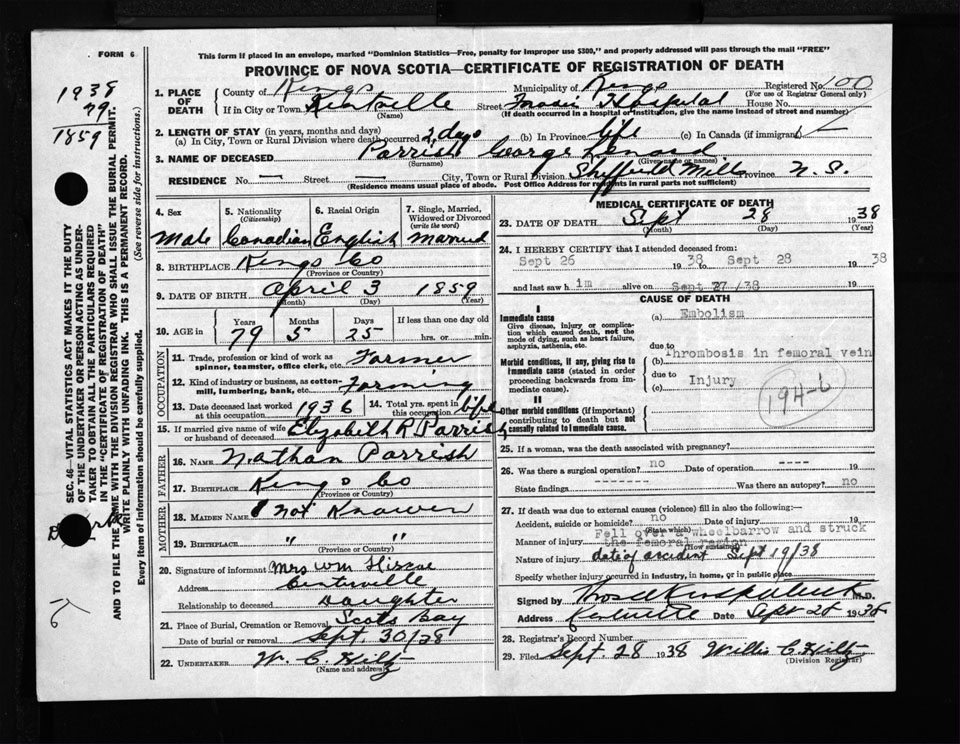 FORM 6
1938
79
1859
This form if placed in an envelope, marked "Dominion Statistics—Free, penalty for improper use $300," and properly addressed will pass through the mail "FREE"
PROVINCE OF NOVA SCOTIA—CERTIFICATE OF REGISTRATION OF DEATH
1. PLACE OF DEATH County of Kings Municipality of Kings Registered No. 100
(For use of Registrar General only)
If in City or Town Kentville Street Hospital House No.
(Name) (If death occurred in a hospital or institution, give the name instead of street and number)
2. LENGTH OF STAY (in years, months and days)
(a) In City, Town or Rural Division where death occurred 2 days (b) In Province life (c) In Canada (if immigrant)
3. NAME OF DECEASED Parrish George Lenard
(Surname) (Given name or names)
RESIDENCE No. — Street — City, Town or Rural Division Sheffield Mills Province N. S.
(Residence means usual place of abode. Post Office Address for residents in rural parts not sufficient)
4. Sex 5. Nationality (Citizenship) 6. Racial Origin 7. Single, Married, Widowed or Divorced (write the word)
Male Canadian English Married
8. BIRTHPLACE Kings Co
(Province or Country)
9. DATE OF BIRTH April 3 1859
(Month) (Day) (Year)
10. AGE in Years Months Days If less than one day old
79 5 25 hrs. or min.
OCCUPATION
11. Trade, profession or kind of work as spinner, teamster, office clerk, etc. Farmer
12. Kind of industry or business, as cotton-mill, lumbering, bank, etc. Farming
13. Date deceased last worked at this occupation 1936 14. Total yrs. spent in this occupation life
15. If married give name of wife or husband of deceased Elizabeth R Parrish
FATHER
16. NAME Nathan Parrish
17. BIRTHPLACE Kings Co
(Province or Country)
MOTHER
18. MAIDEN NAME not Known
19. BIRTHPLACE " "
(Province or Country)
20. Signature of informant Mrs Wm
Address Centerville
Relationship to deceased Daughter
21. Place of Burial, Cremation or Removal Scots Bay
Date of burial or removal Sept. 30/38
22. UNDERTAKER W. C. Hiltz
(Name and address)
MEDICAL CERTIFICATE OF DEATH
23. DATE OF DEATH Sept 28 1938
(Month) (Day) (Year)
24. I HEREBY CERTIFY that I attended deceased from:
Sept 26 1938 to Sept 28 1938
and last saw him alive on Sept 27/38 19
CAUSE OF DEATH
I
Immediate cause (a) Embolism
Give disease, injury or complication which caused death, not the mode of dying, such as heart failure, asphyxia, asthenia, etc.
due to
Morbid conditions, if any, giving rise to Immediate cause (stated in order proceeding backwards from immediate cause).
(b) Thrombosis in femoral vein
due to
(c) Injury
194-b
II
Other morbid conditions (if important) contributing to death but not causally related to Immediate cause.
25. If a woman, was the death associated with pregnancy?
26. Was there a surgical operation? no Date of operation ---- 19
State findings -------- Was there an autopsy? no
27. If death was due to external causes (violence) fill in also the following:
Accident, suicide or homicide? no Date of injury 19
(State which)
Manner of injury Fell over a wheelbarrow and struck the femoral region
(How sustained)
Nature of injury date of accident Sept 19/38
Specify whether injury occurred in industry, in home, or in public place
Signed by M.D.
Address Kentville Date Sept 28 1938
28. Registrar's Record Number
29. Filed Sept. 28 1938 Willis C. Hiltz
(Division Registrar)
SEC. 46—VITAL STATISTICS ACT MAKES IT THE DUTY
OF THE UNDERTAKER OR PERSON ACTING AS UNDER-
TAKER TO OBTAIN ALL THE PARTICULARS REQUIRED
IN THE "CERTIFICATE OF REGISTRATION OF DEATH"
AND TO FILE THE SAME WITH THE DIVISION REGISTRAR WHO SHALL ISSUE THE BURIAL PERMIT.
WRITE PLAINLY WITH UNFADING INK. THIS IS A PERMANENT RECORD.
Every item of information should be carefully supplied. (See reverse side for instructions.)